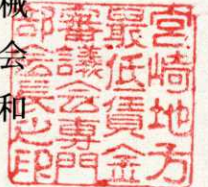 械
会
和
宮崎地方
最低賃金
審議会専門
部会長之印